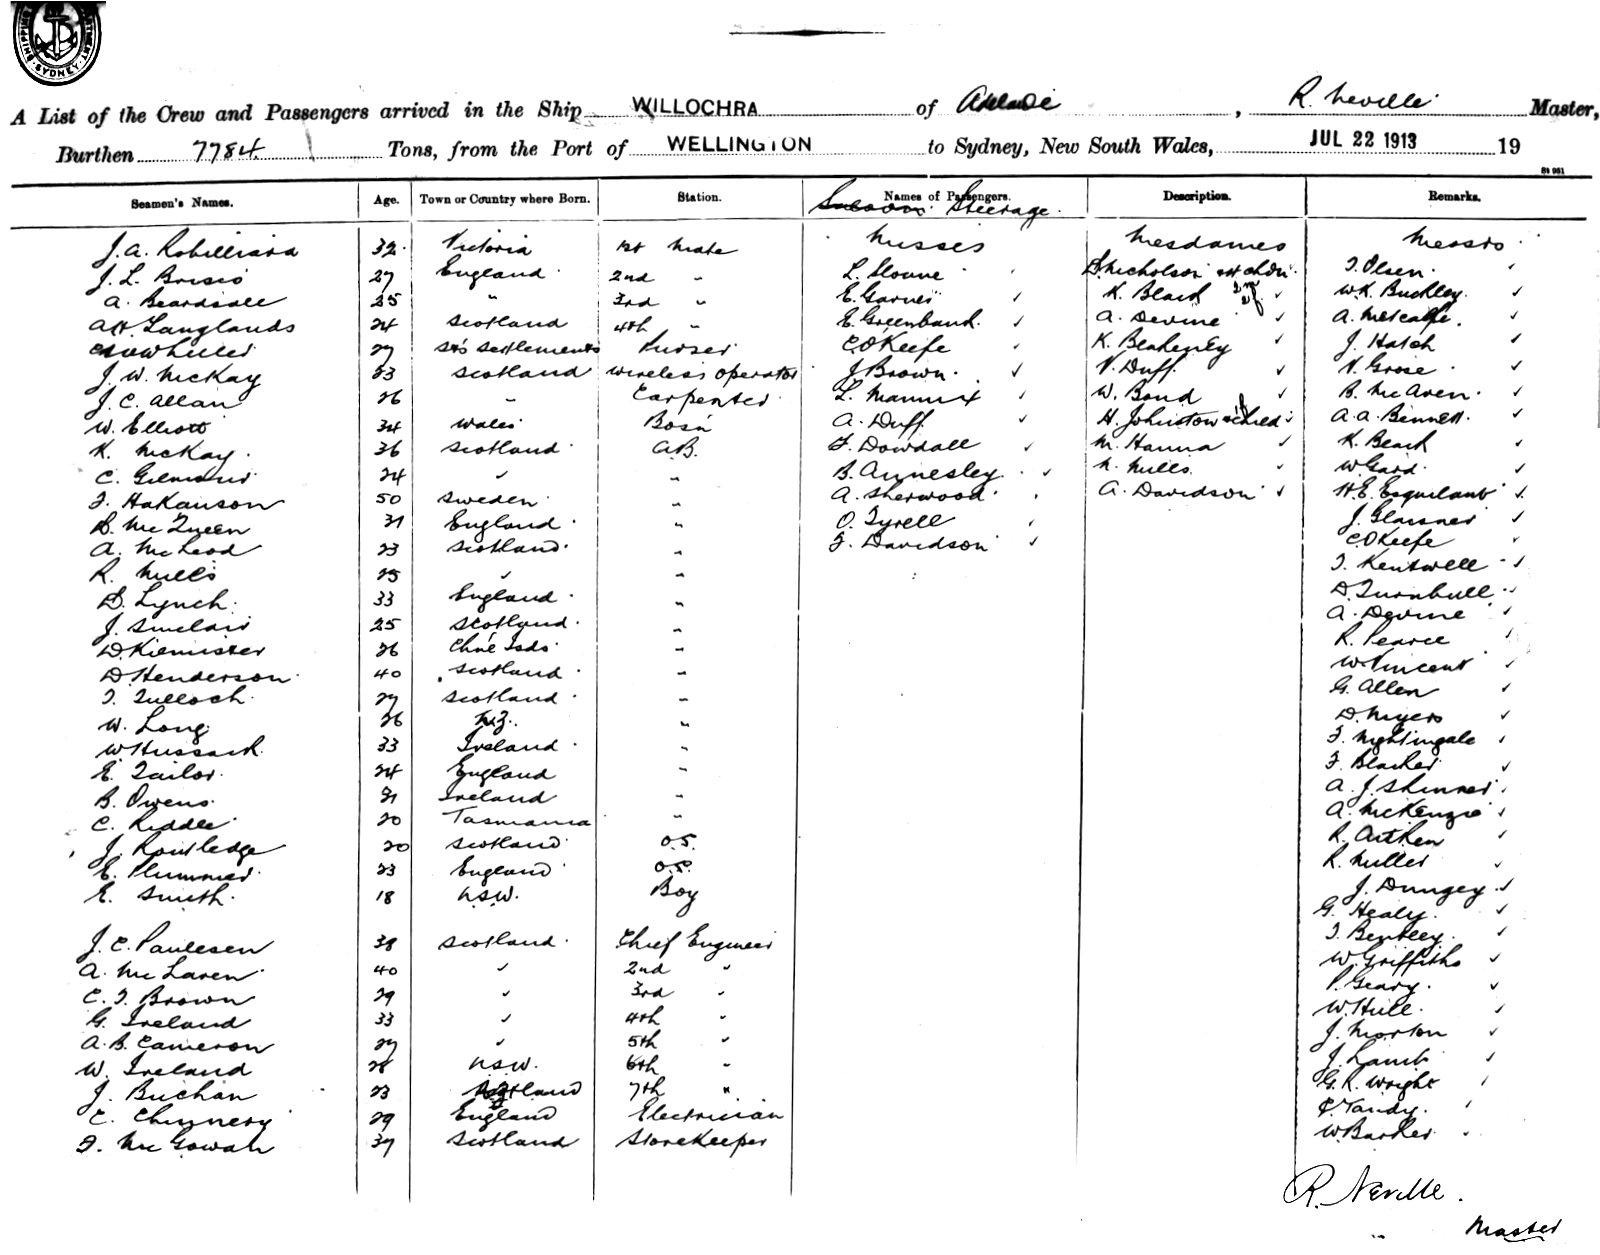 SHIPPING
SYDNEY
A List of the Crew and Passengers arrived in the Ship WILLOCHRA of Adelaide, R. Neville Master,
Burthen 7784 Tons, from the Port of WELLINGTON to Sydney, New South Wales, JUL 22 1913 19
Seamen's Names. Age. Town or Country where Born. Station. Names of Passengers. Description. Remarks.
Saloon Steerage.
J. A. Robilliard 32 Victoria 1st Mate Misses Mesdames Messrs
J. L. 27 England 2nd " L. Sloane D. Nicholson T. Olsen
A. Beardsall 25 " 3rd " E. Garner K. Black 2m 2f W.K. Buckley
A.H. Langlands 24 Scotland 4th " E. Greenbank A. Devine A. Metcalfe
27 Sts Settlements Purser C. O'Keefe K. Blakeney J. Hatch
J. W. McKay 23 Scotland Wireless Operator J. Brown V. Duff V. Grose
J. C. Allan 26 " Carpenter L. Mannix W. Bond B. McAven
W. Elliott 34 Wales Bosn A. Duff H. Johnston A. A. Bennett
K. McKay 36 Scotland A.B. F. Dowdall M. Hanna K. Beach
C. 24 " " B. Annesley N. Mills W. Gard
F. Hakanson 50 Sweden " A. Sherwood A. Davidson H.E. Esquilant
D. McQueen 31 England " O. Tyrell J.
A. McLeod 23 Scotland " F. Davidson C O'Keefe
R. Mills 25 " " T. Kentwell
D. Lynch 33 England " D. Turnbull
J. Sinclair 25 Scotland " A. Devine
D. Kiemister 26 " R. Pearce
D. Henderson 40 Scotland " W. Vincent
T. Tulloch 27 Scotland " G. Allen
W. Long 26 N.Z. " D. Myers
W. Hussack 33 Ireland " F. Nightingale
E. Tailor 24 England " F. Blacker
B. Owens 21 Ireland " A. J. Skinner
C. Riddle 20 Tasmania " A. McKenzie
J. Routledge 20 Scotland O.S. R. Aitken
E. Plummer 23 England O.S. R. Miller
E. Smith 18 N.S.W. Boy J. Dungey
G. Healy
J. C. Paulesen 38 Scotland Chief Engineer T. Bentley
A. McLaren 40 " 2nd " W. Griffiths
C. T. Brown 29 " 3rd " P. Geary
G. Ireland 33 " 4th " W. Hill
A. B. Cameron 27 " 5th " J. Morton
W. Ireland 28 N.S.W. 6th " J. Lamb
J. Buchan 23 7th " G. K. Wright
C. Chinnery 29 England Electrician C. Tandy
F. McGowan 37 Scotland Storekeeper W. Barker
R. Neville.
Master